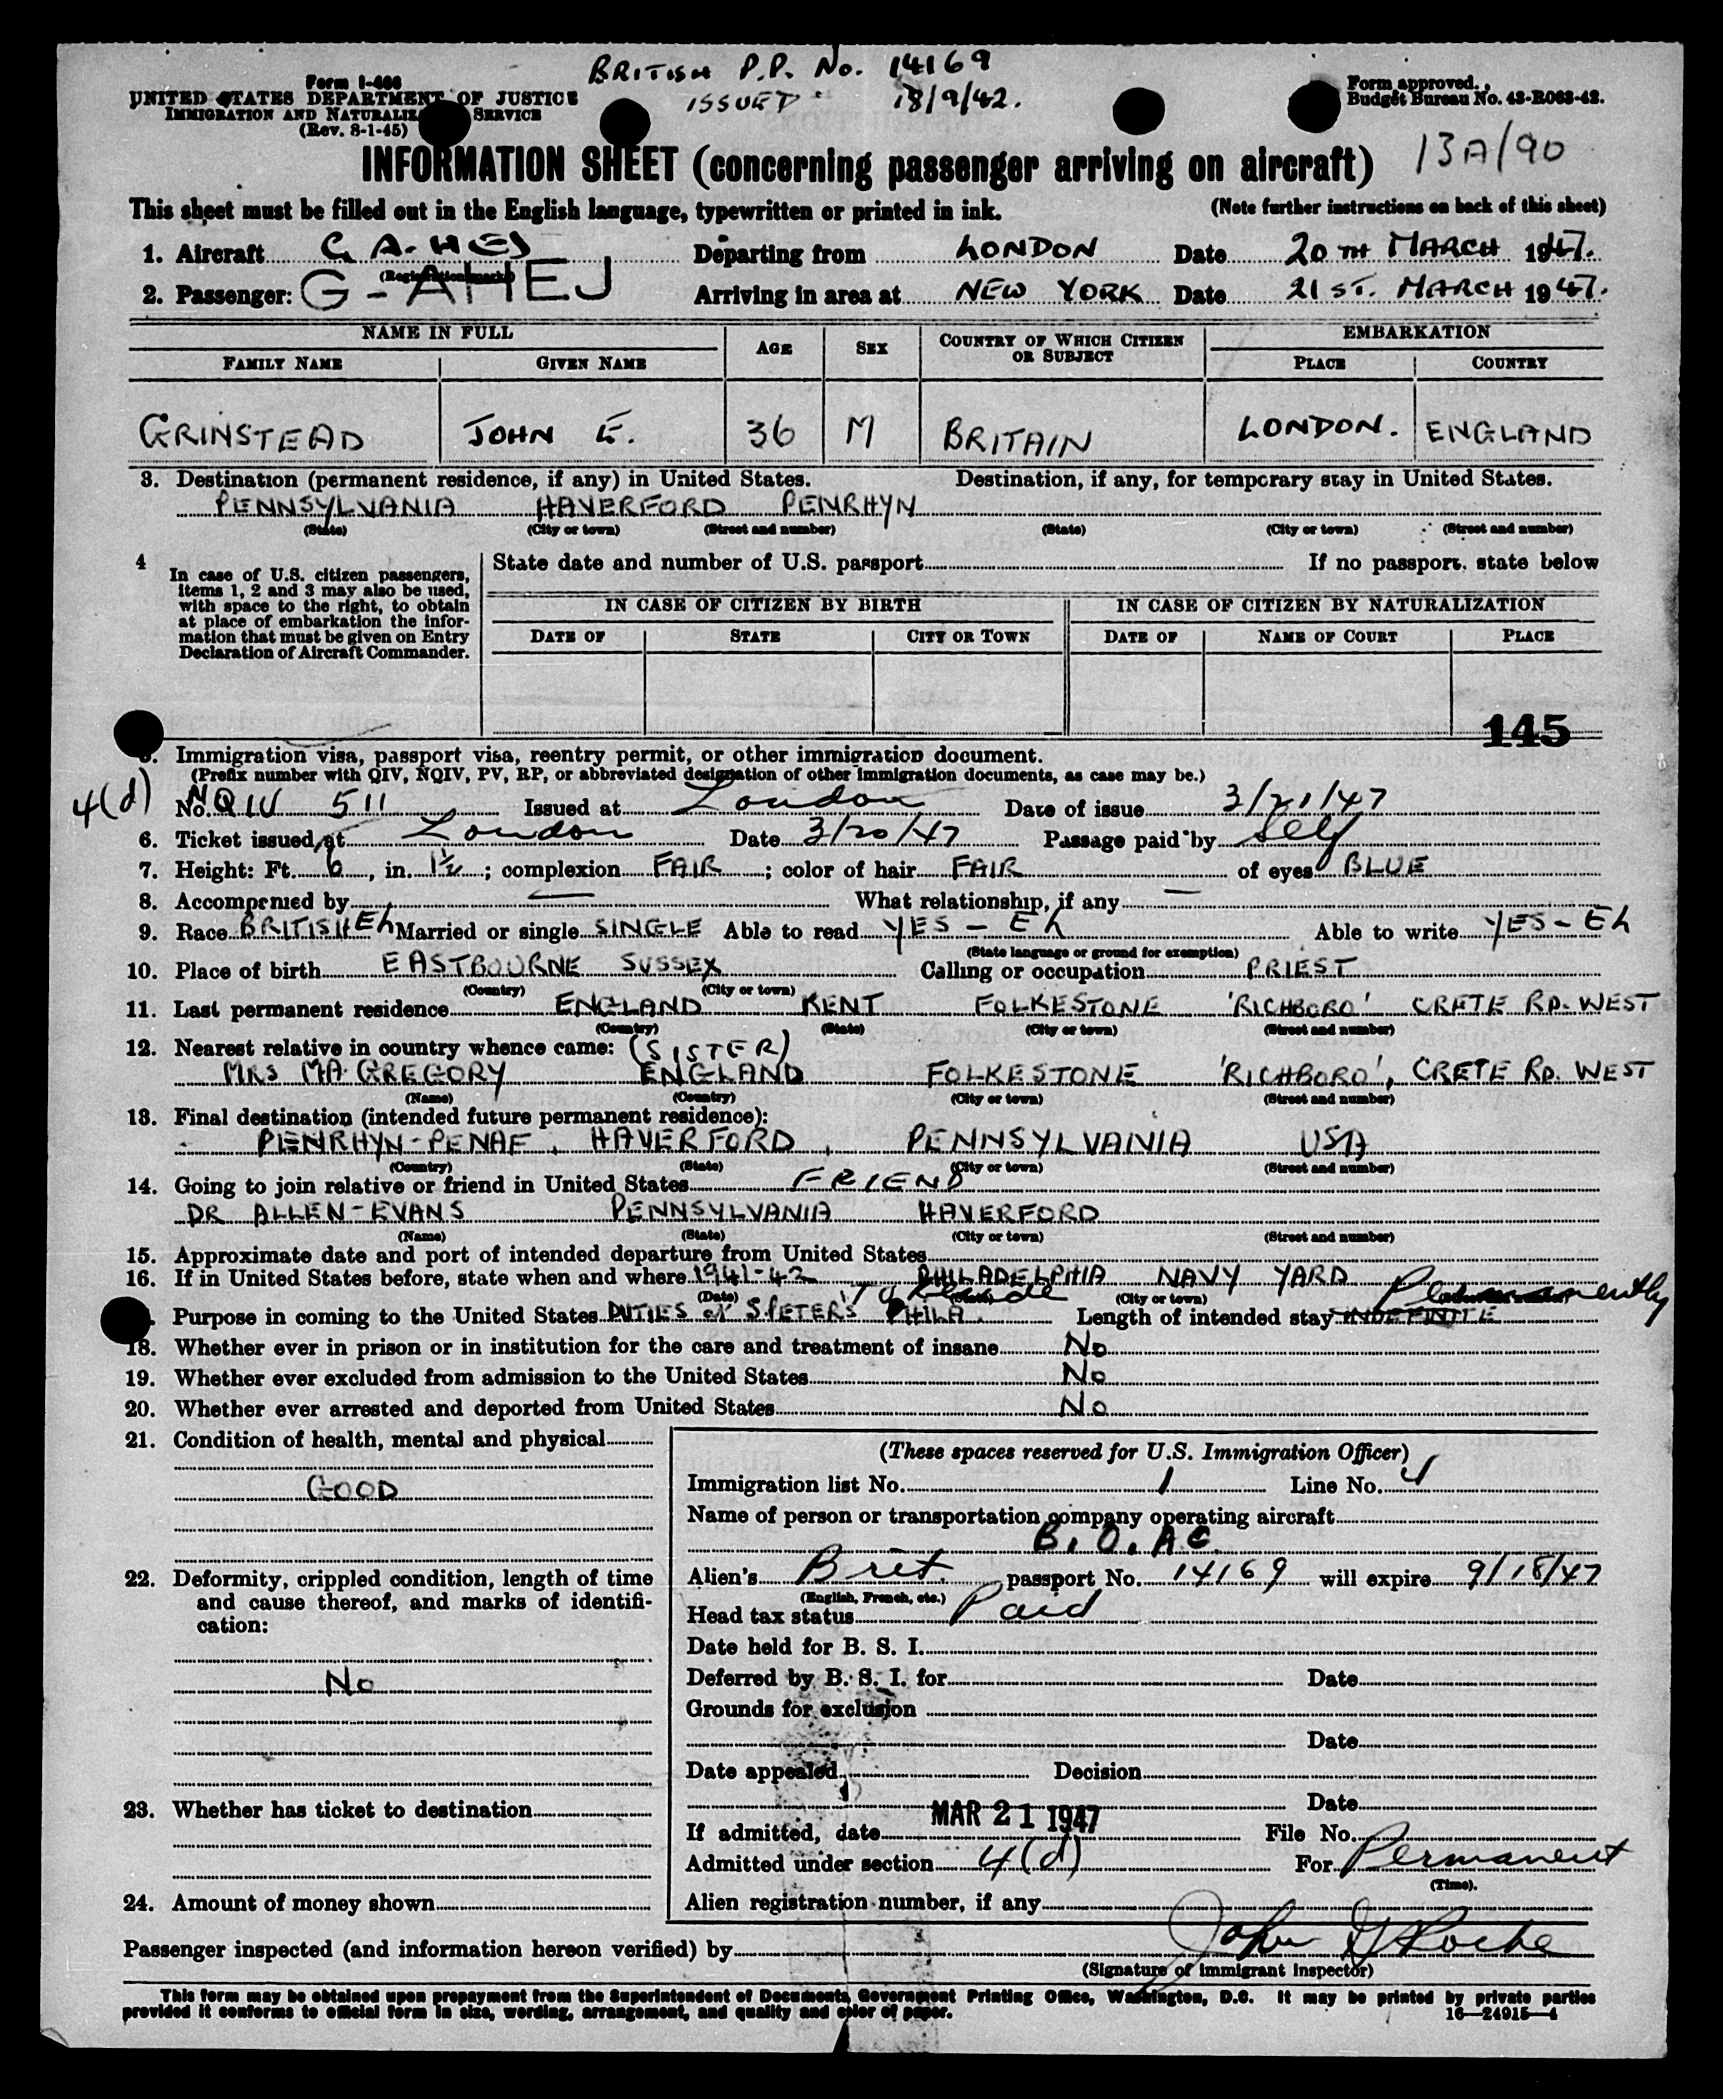 BRITISH P.P. No. 14169
ISSUED 18/9/42.
Form I-466
UNITED STATES DEPARTMENT OF JUSTICE
IMMIGRATION AND NATURALIZ SERVICE
(Rev. 8-1-45)
Form approved.
Budget Bureau No. 43-R063-42.
13A/90
INFORMATION SHEET (concerning passenger arriving on aircraft)
This sheet must be filled out in the English language, typewritten or printed in ink. (Note further instructions on back of this sheet)
1. Aircraft G A-HEJ Departing from LONDON Date 20TH MARCH 1947.
(Registration mark)
2. Passenger: G-AHEJ Arriving in area at NEW YORK Date 21ST. MARCH 1947.
NAME IN FULL AGE SEX COUNTRY OF WHICH CITIZEN OR SUBJECT EMBARKATION
FAMILY NAME GIVEN NAME PLACE COUNTRY
GRINSTEAD JOHN E. 36 M BRITAIN LONDON. ENGLAND
3. Destination (permanent residence, if any) in United States. Destination, if any, for temporary stay in United States.
PENNSYLVANIA HAVERFORD PENRHYN
(State) (City or town) (Street and number) (State) (City or town) (Street and number)
4 In case of U.S. citizen passengers,
items 1, 2 and 3 may also be used,
with space to the right, to obtain
at place of embarkation the infor-
mation that must be given on Entry
Declaration of Aircraft Commander.
State date and number of U.S. passport If no passport, state below
IN CASE OF CITIZEN BY BIRTH IN CASE OF CITIZEN BY NATURALIZATION
DATE OF STATE CITY OR TOWN DATE OF NAME OF COURT PLACE
145
5. Immigration visa, passport visa, reentry permit, or other immigration document.
(Prefix number with QIV, NQIV, PV, RP, or abbreviated designation of other immigration documents, as case may be.)
4(d) No. NQIV 511 Issued at London Date of issue 3/21/47
6. Ticket issued at London Date 3/20/47 Passage paid by Self
7. Height: Ft. 6, in. 1½; complexion FAIR; color of hair FAIR of eyes BLUE
8. Accompanied by — What relationship, if any —
9. Race BRITISH Eh Married or single SINGLE Able to read YES - Eh Able to write YES - Eh
(State language or ground for exemption)
10. Place of birth EASTBOURNE SUSSEX Calling or occupation PRIEST
(Country) (City or town)
11. Last permanent residence ENGLAND KENT FOLKESTONE 'RICHBORO' CRETE RD. WEST
(Country) (State) (City or town) (Street and number)
12. Nearest relative in country whence came: (SISTER)
MRS MA GREGORY ENGLAND FOLKESTONE 'RICHBORO', CRETE RD. WEST
(Name) (Country) (City or town) (Street and number)
13. Final destination (intended future permanent residence):
PENRHYN-PENAF, HAVERFORD, PENNSYLVANIA USA
(Country) (State) (City or town) (Street and number)
14. Going to join relative or friend in United States FRIEND
DR ALLEN-EVANS PENNSYLVANIA HAVERFORD
(Name) (State) (City or town) (Street and number)
15. Approximate date and port of intended departure from United States
16. If in United States before, state when and where 1941-42 PHILADELPHIA NAVY YARD
(Date) (State) (City or town) (Street and number)
To Reside Permanently
17. Purpose in coming to the United States DUTIES at S. PETER'S PHILA. Length of intended stay INDEFINITE
18. Whether ever in prison or in institution for the care and treatment of insane No
19. Whether ever excluded from admission to the United States No
20. Whether ever arrested and deported from United States No
21. Condition of health, mental and physical
GOOD
22. Deformity, crippled condition, length of time
and cause thereof, and marks of identifi-
cation:
No
23. Whether has ticket to destination
24. Amount of money shown
(These spaces reserved for U.S. Immigration Officer)
Immigration list No. 1 Line No. 4
Name of person or transportation company operating aircraft
B.O.A.C.
Alien's Brit. passport No. 14169 will expire 9/18/47
(English, French, etc.)
Head tax status Paid
Date held for B. S. I.
Deferred by B. S. I. for Date
Grounds for exclusion
Date
Date appealed Decision
Date
If admitted, date MAR 21 1947 File No.
Admitted under section 4(d) For Permanent
(Time).
Alien registration number, if any
Passenger inspected (and information hereon verified) by John G Roche
(Signature of immigrant inspector)
This form may be obtained upon prepayment from the Superintendent of Documents, Government Printing Office, Washington, D.C. It may be printed by private parties
provided it conforms to official form in size, wording, arrangement, and quality and color of paper. 16—24915—4